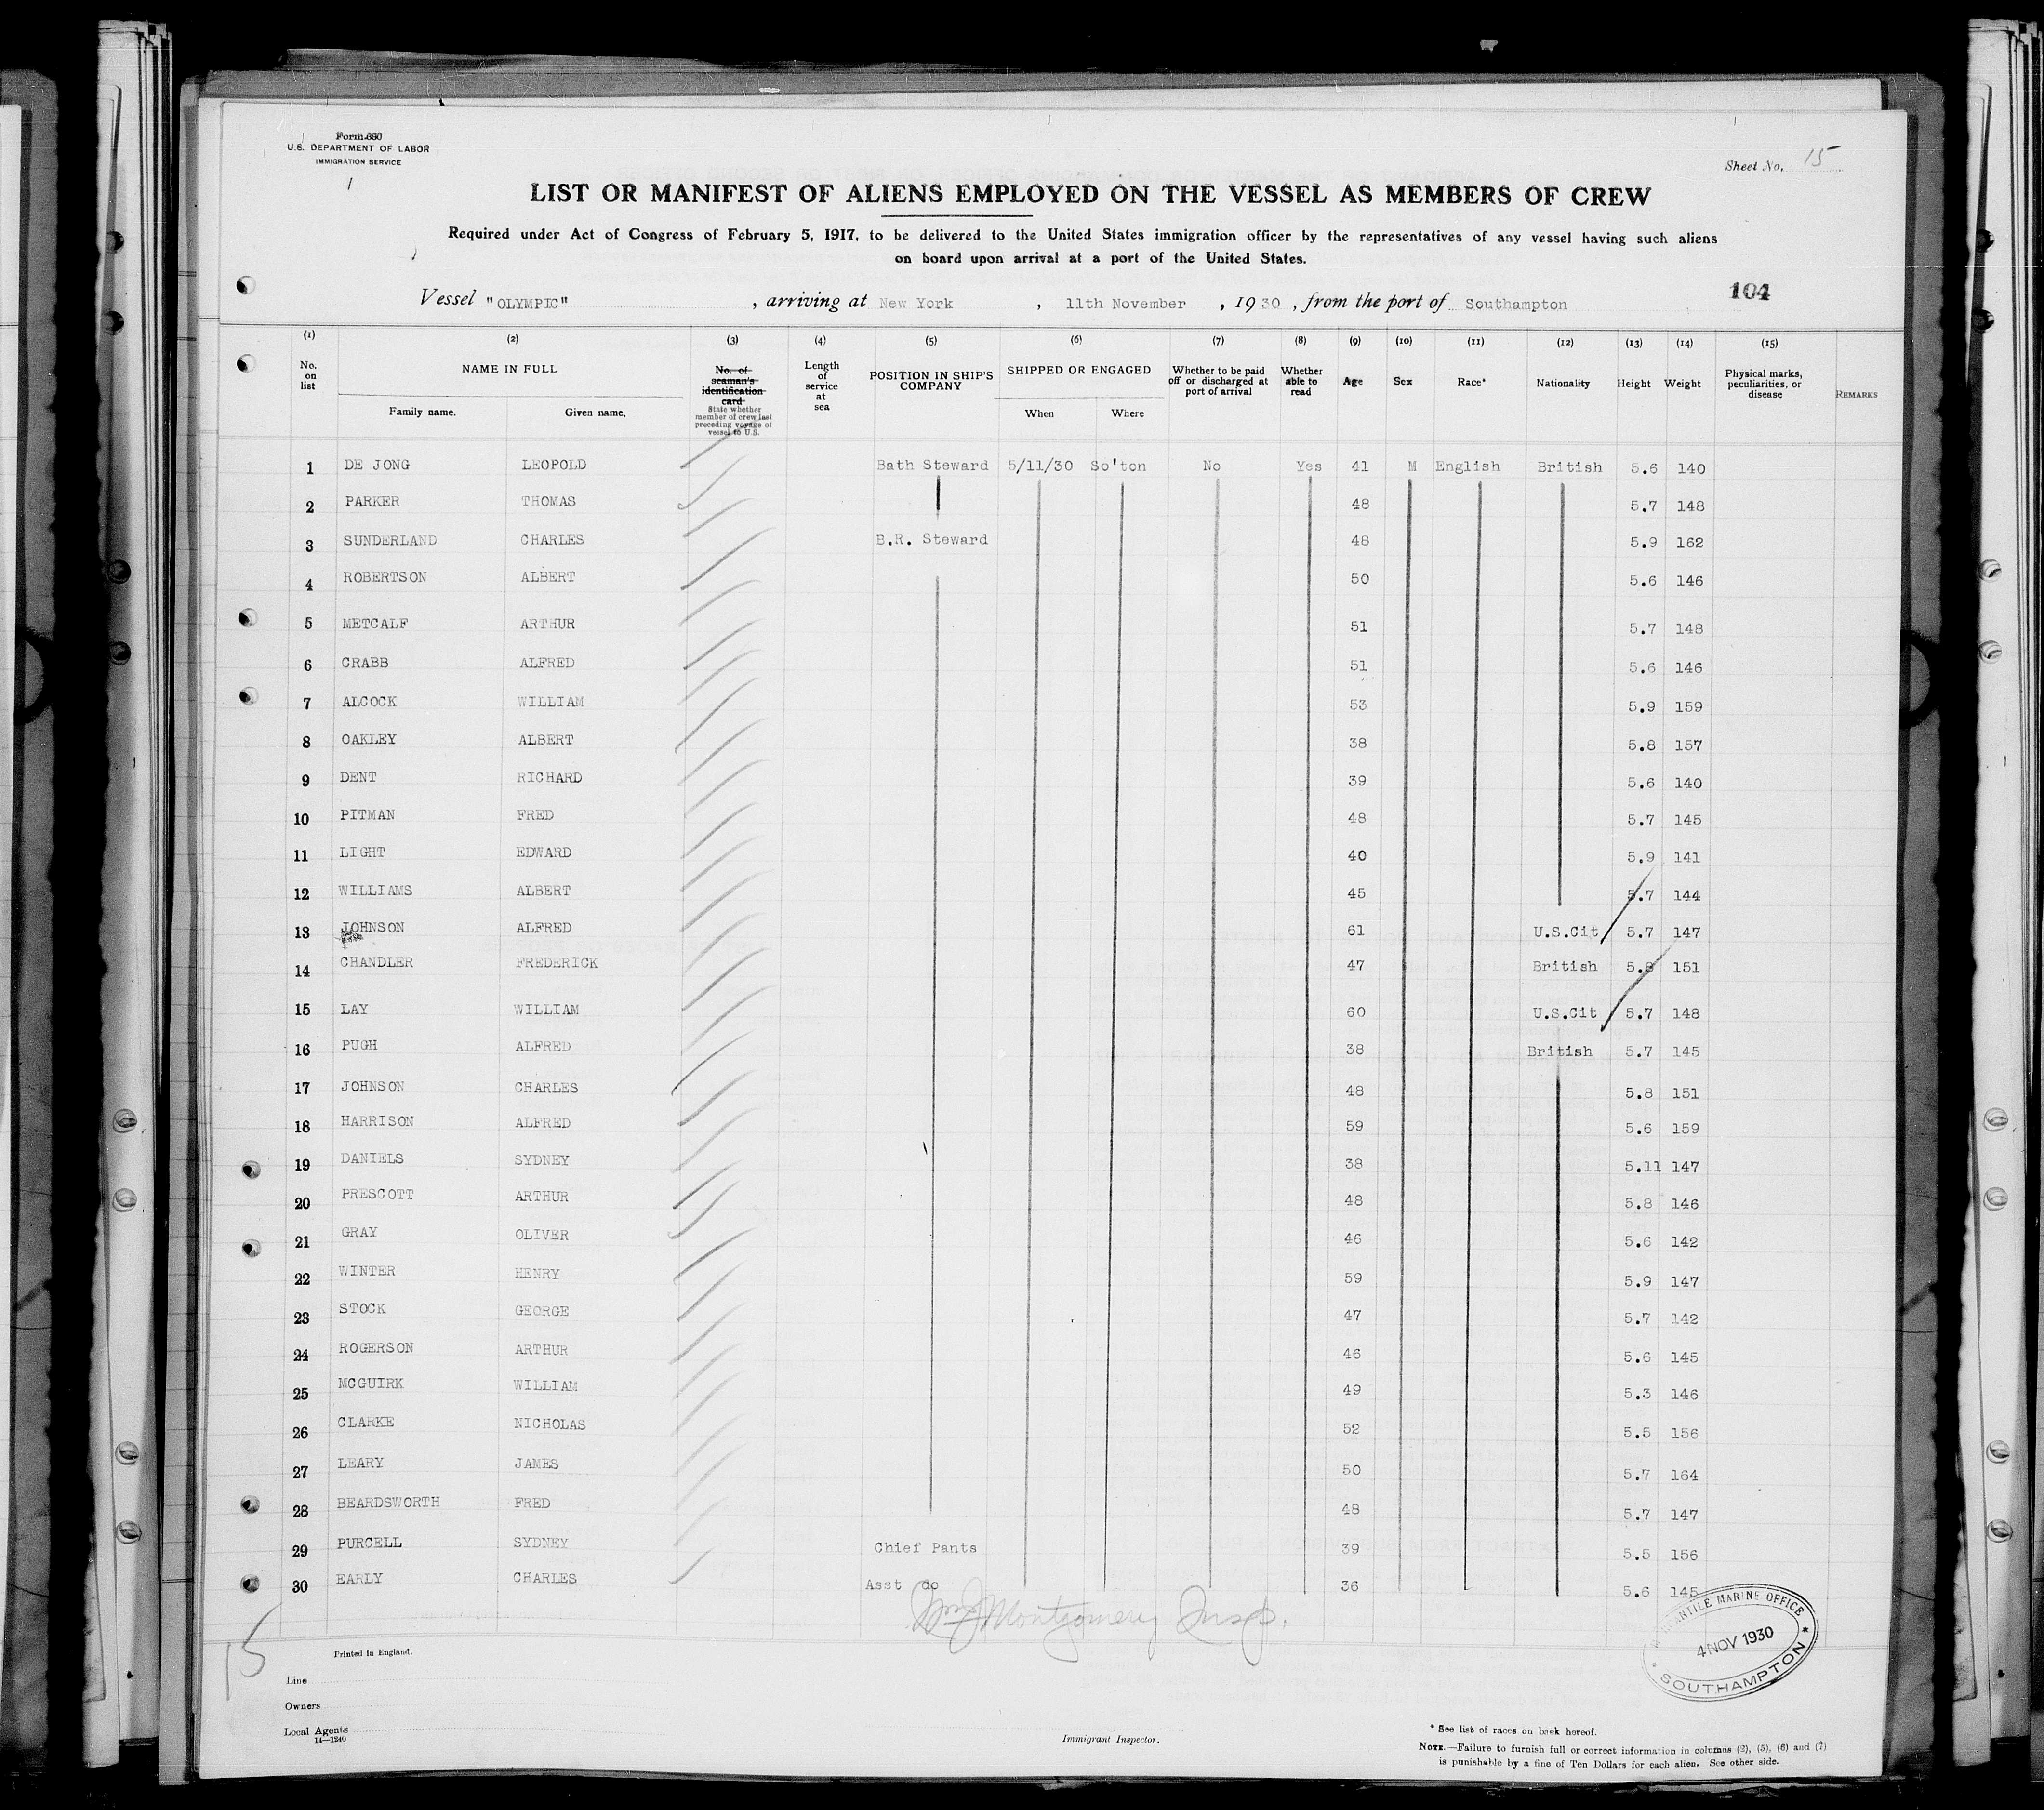 Form 680
U.S. DEPARTMENT OF LABOR
IMMIGRATION SERVICE
Sheet No. 15
LIST OR MANIFEST OF ALIENS EMPLOYED ON THE VESSEL AS MEMBERS OF CREW
Required under Act of Congress of February 5, 1917, to be delivered to the United States immigration officer by the representatives of any vessel having such aliens
on board upon arrival at a port of the United States.
Vessel "OLYMPIC", arriving at New York, 11th November, 1930, from the port of Southampton
104
(1) (2) (3) (4) (5) (6) (7) (8) (9) (10) (11) (12) (13) (14) (15)
No. on list
NAME IN FULL
Family name. Given name.
No. of seaman's identification card
State whether member of crew last preceding voyage of vessel to U.S.
Length of service at sea
POSITION IN SHIP'S COMPANY
SHIPPED OR ENGAGED
When Where
Whether to be paid off or discharged at port of arrival
Whether able to read
Age
Sex
Race*
Nationality
Height
Weight
Physical marks, peculiarities, or disease
REMARKS
1 DE JONG LEOPOLD Bath Steward 5/11/30 So'ton No Yes 41 M English British 5.6 140
2 PARKER THOMAS 48 5.7 148
3 SUNDERLAND CHARLES B.R. Steward 48 5.9 162
4 ROBERTSON ALBERT 50 5.6 146
5 METCALF ARTHUR 51 5.7 148
6 CRABB ALFRED 51 5.6 146
7 ALCOCK WILLIAM 53 5.9 159
8 OAKLEY ALBERT 38 5.8 157
9 DENT RICHARD 39 5.6 140
10 PITMAN FRED 48 5.7 145
11 LIGHT EDWARD 40 5.9 141
12 WILLIAMS ALBERT 45 5.7 144
13 JOHNSON ALFRED 61 U.S.Cit 5.7 147
14 CHANDLER FREDERICK 47 British 5.8 151
15 LAY WILLIAM 60 U.S.Cit 5.7 148
16 PUGH ALFRED 38 British 5.7 145
17 JOHNSON CHARLES 48 5.8 151
18 HARRISON ALFRED 59 5.6 159
19 DANIELS SYDNEY 38 5.11 147
20 PRESCOTT ARTHUR 48 5.8 146
21 GRAY OLIVER 46 5.6 142
22 WINTER HENRY 59 5.9 147
23 STOCK GEORGE 47 5.7 142
24 ROGERSON ARTHUR 46 5.6 145
25 MCGUIRK WILLIAM 49 5.3 146
26 CLARKE NICHOLAS 52 5.5 156
27 LEARY JAMES 50 5.7 164
28 BEARDSWORTH FRED 48 5.7 147
29 PURCELL SYDNEY Chief Pants 39 5.5 156
30 EARLY CHARLES Asst do 36 5.6 145
Wm J Montgomery Insp.
15
MERCANTILE MARINE OFFICE
4 NOV 1930
SOUTHAMPTON
Printed in England.
Line
Owners
Local Agents
14—1240
Immigrant Inspector.
* See list of races on back hereof.
NOTE.—Failure to furnish full or correct information in columns (2), (5), (6) and (7)
is punishable by a fine of Ten Dollars for each alien. See other side.